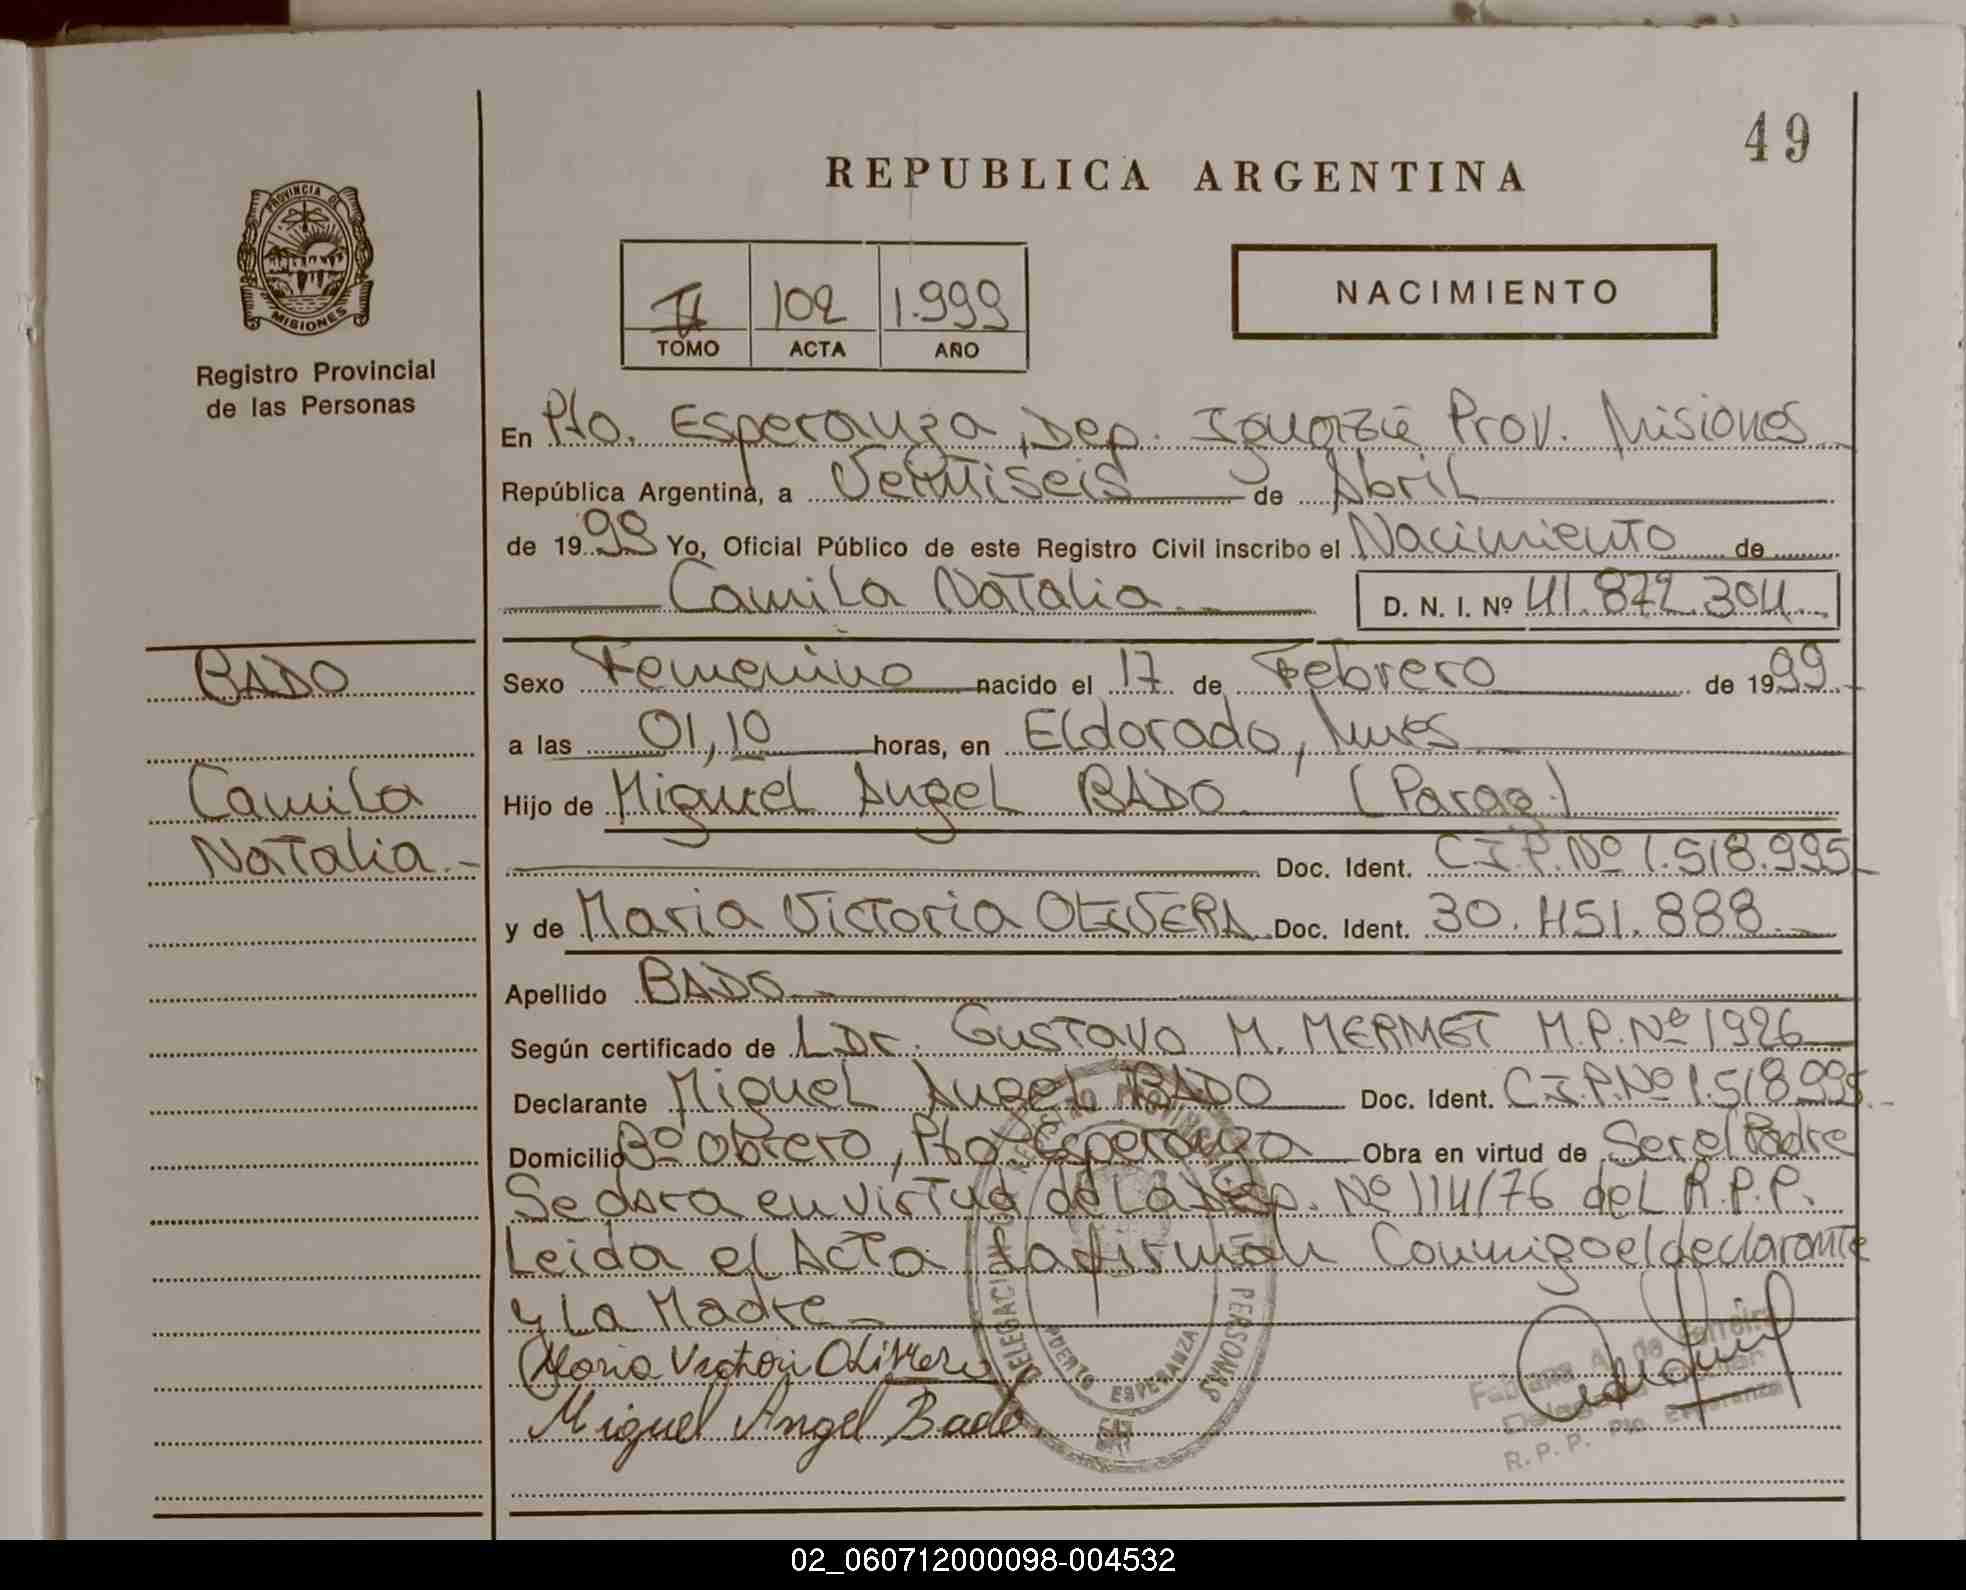 49
REPUBLICA ARGENTINA
PROVINCIA DE
MISIONES
Registro Provincial
de las Personas
II 102 1.999
TOMO ACTA AÑO
NACIMIENTO
En Pto. Esperanza, Dep. Iguazú Prov. Misiones
República Argentina, a Veintiseis de Abril
de 1999 Yo, Oficial Público de este Registro Civil inscribo el Nacimiento de
Camila Natalia D. N. I. Nº 41.872.304
BADO
Camila
Natalia.-
Sexo Femenino nacido el 17 de Febrero de 1999
a las 01,10 horas, en Eldorado, Mnes
Hijo de Miguel Angel BADO (Parag.)
Doc. Ident. C.I.P. Nº 1.518.995
y de Maria Victoria OLIVERA Doc. Ident. 30.451.888
Apellido BADO
Según certificado de Dr. Gustavo M. MERMET M.P. Nº 1926
Declarante Miguel Angel BADO Doc. Ident. C.I.P. Nº 1.518.995
Domicilio Bº Obrero, Pto. Esperanza Obra en virtud de Ser el Padre
Se dora en virtud de La Disp. Nº 114/76 del R.P.P.
Leida el Acta La firman Conmigo el declarante
y La Madre
Maria Victori Olivera
Miguel Angel Bado.
DELEGACION
PERSONAS
PUERTO ESPERANZA
Fabiana A. de Ferreira
R. P. P. Pto. Esperanza
02_060712000098-004532